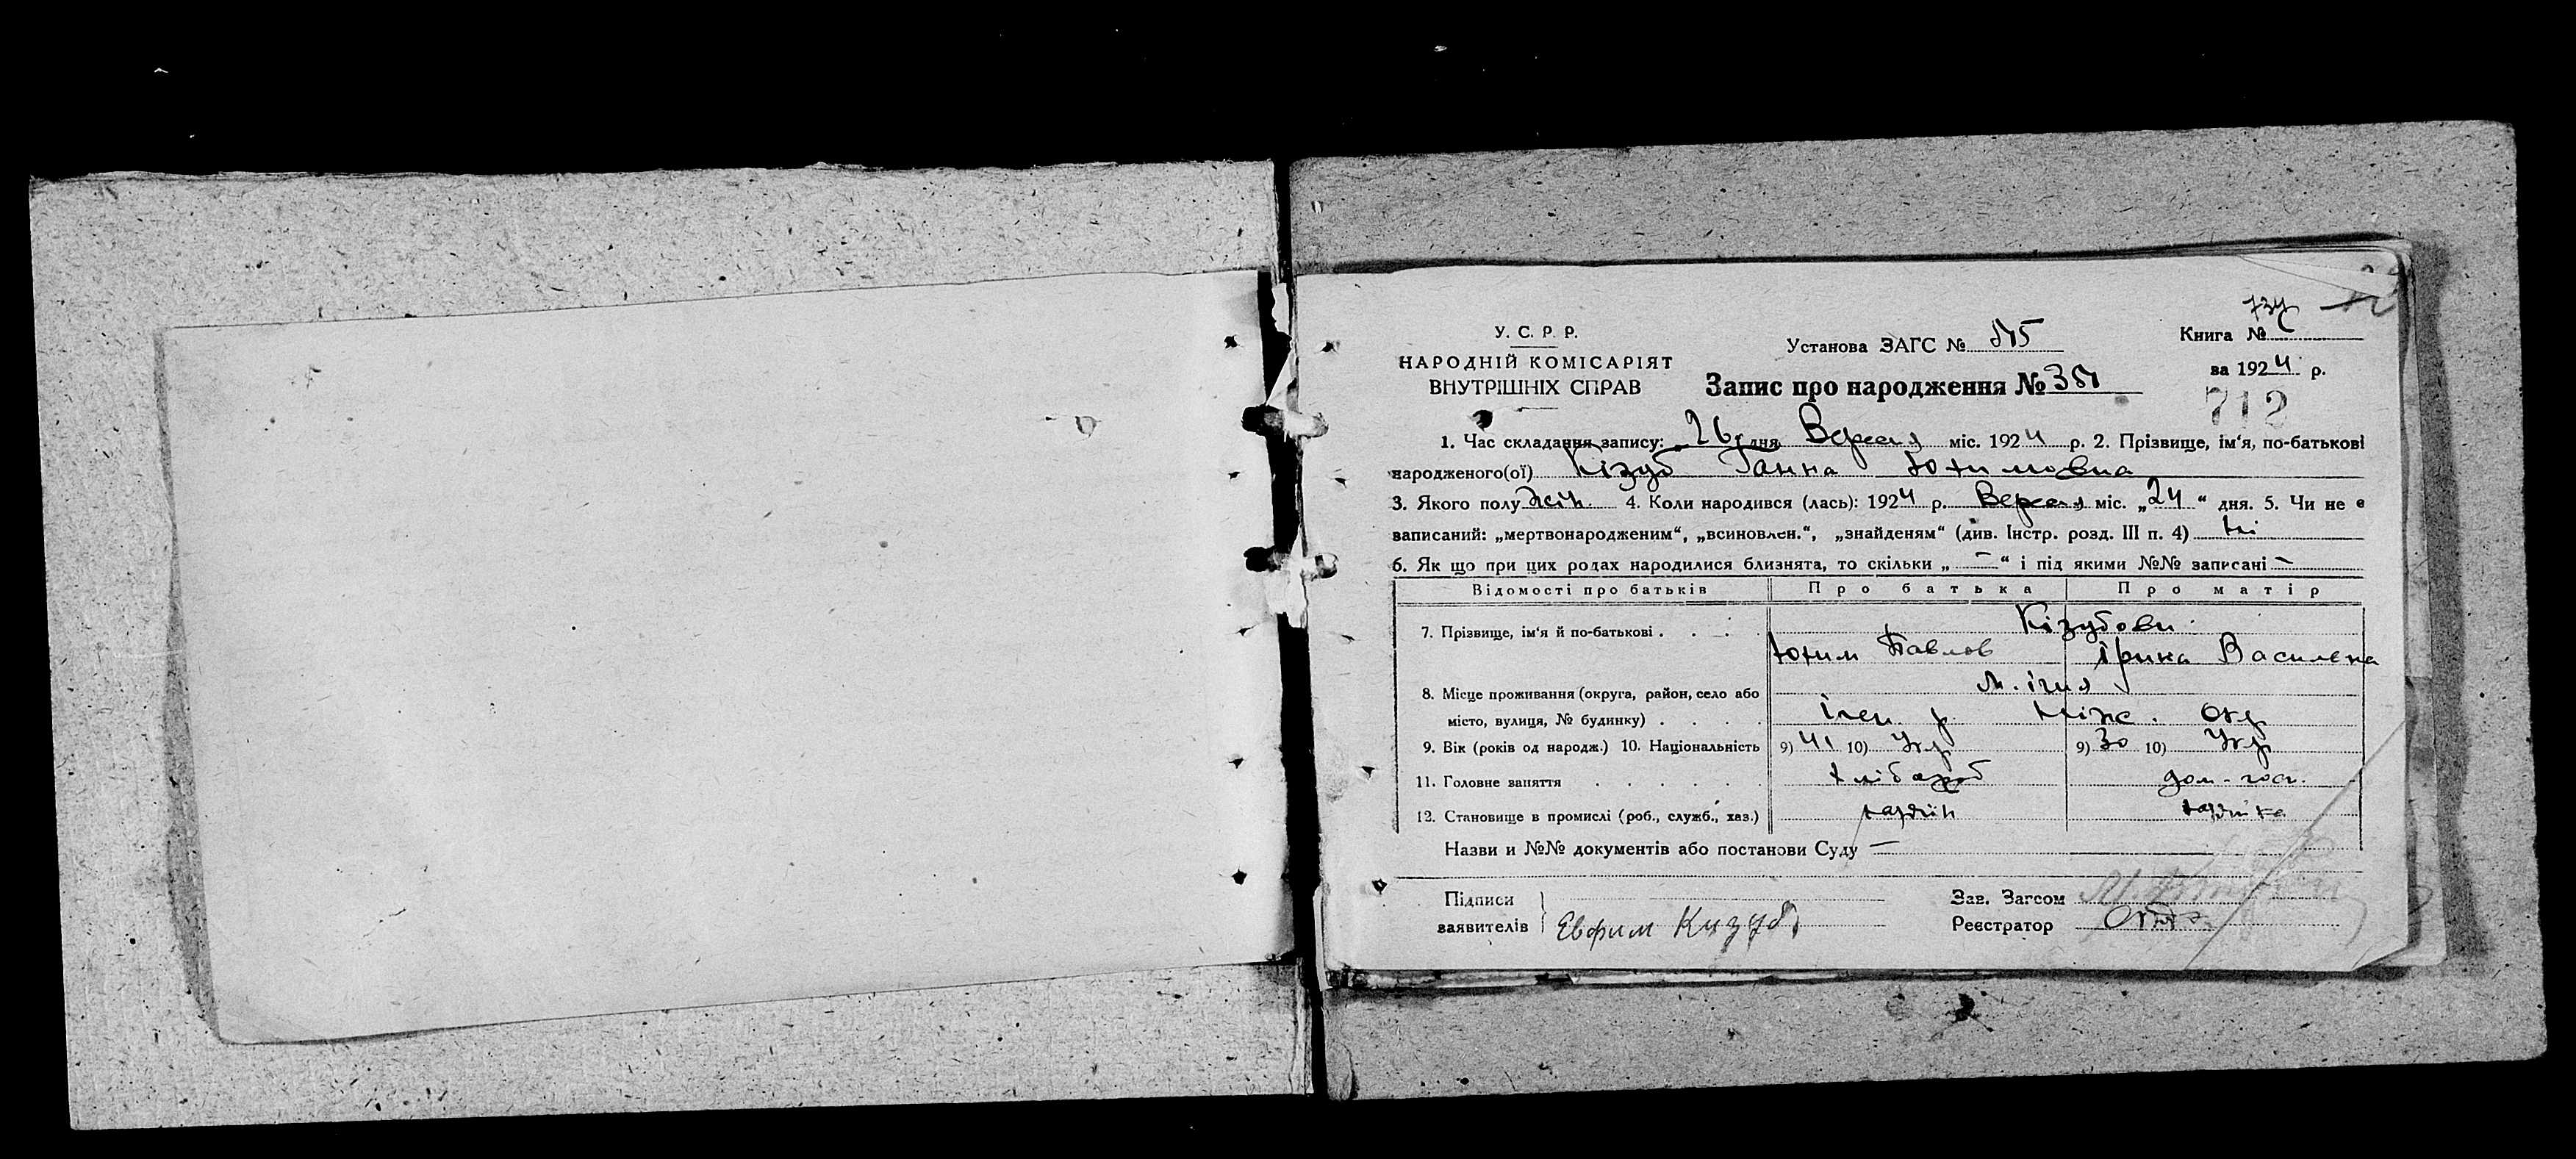 У. С. Р. Р.
НАРОДНІЙ КОМІСАРІЯТ
ВНУТРІШНІХ СПРАВ
Установа ЗАГС №
Запис про народження №
734
Книга №
за 1924 р.
712
1. Час складання запису: 26 дня Вересня міс. 1924 р. 2. Прізвище, ім'я, по-батькові
народженого(ої) Кізуб Ганна Юхимовна
3. Якого полу жін. 4. Коли народився (лась): 1924 р. Вересня міс. „24“ дня. 5. Чи не є
записаний: „мертвонародженим“, „всиновлен.“, „знайденям“ (див. Інстр. розд. III п. 4) ні
6. Як що при цих родах народилися близнята, то скільки „—“ і під якими №№ записані —
Відомості про батьків Про батька Про матір
7. Прізвище, ім'я й по-батькові . . . . Кізубови
Юхим Павлов Ірина Василена
8. Місце проживання (округа, район, село або м. ічня
місто, вулиця, № будинку) . . . . ічен. р. Ніж. Окр
9. Вік (років од народж.) 10. Національність 9) 41 10) Укр 9) 30 10) Укр
11. Головне заняття . . . . . . хлібороб дом-гос.
12. Становище в промислі (роб., служб., хаз.) хазяїн хазяйка
Назви и №№ документів або постанови Суду —
Підписи
заявителів Евфим Кизуб
Зав. Загсом
Реєстратор